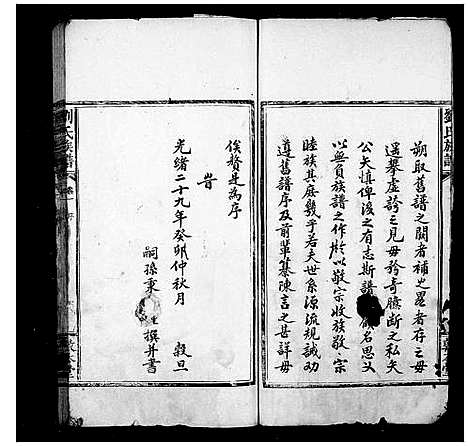 朔取舊譜之闕者補之畧者存之毋
選舉虛誇之見毋矜奇臆斷之私矢
公矢慎俾後之有志斯譜 顧名思义
以無負族譜之作於以敬宗收族敬宗
睦族其庶幾乎若夫世系源流規誡劝
遵舊譜序及前軰纂陳言之甚詳毋
俟贅是為序
旹
光緒二十九年癸卯仲秋月 穀旦
嗣孫東 撰并書
劉氏族譜
劉氏族譜